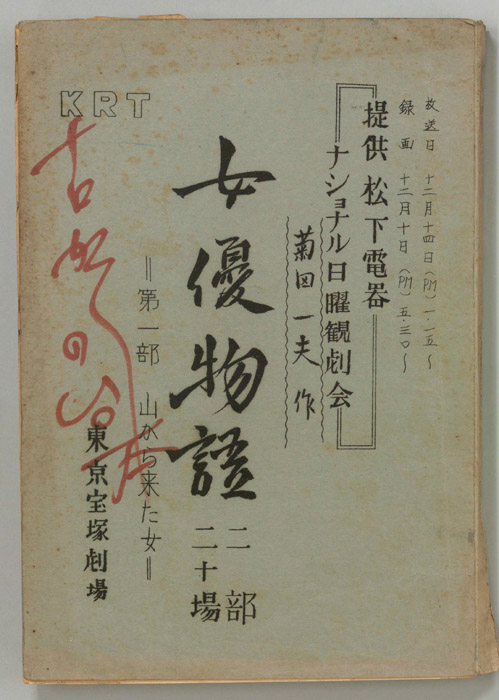 放送日 十二月十四日(PM)一・一五〜
録画 十二月十日(PM)五・三〇〜
提供 松下電器
ナショナル日曜観劇会
菊田一夫 作
KRT
女優物語
二部
二十場
=第一部 山から来た女=
東京宝塚劇場